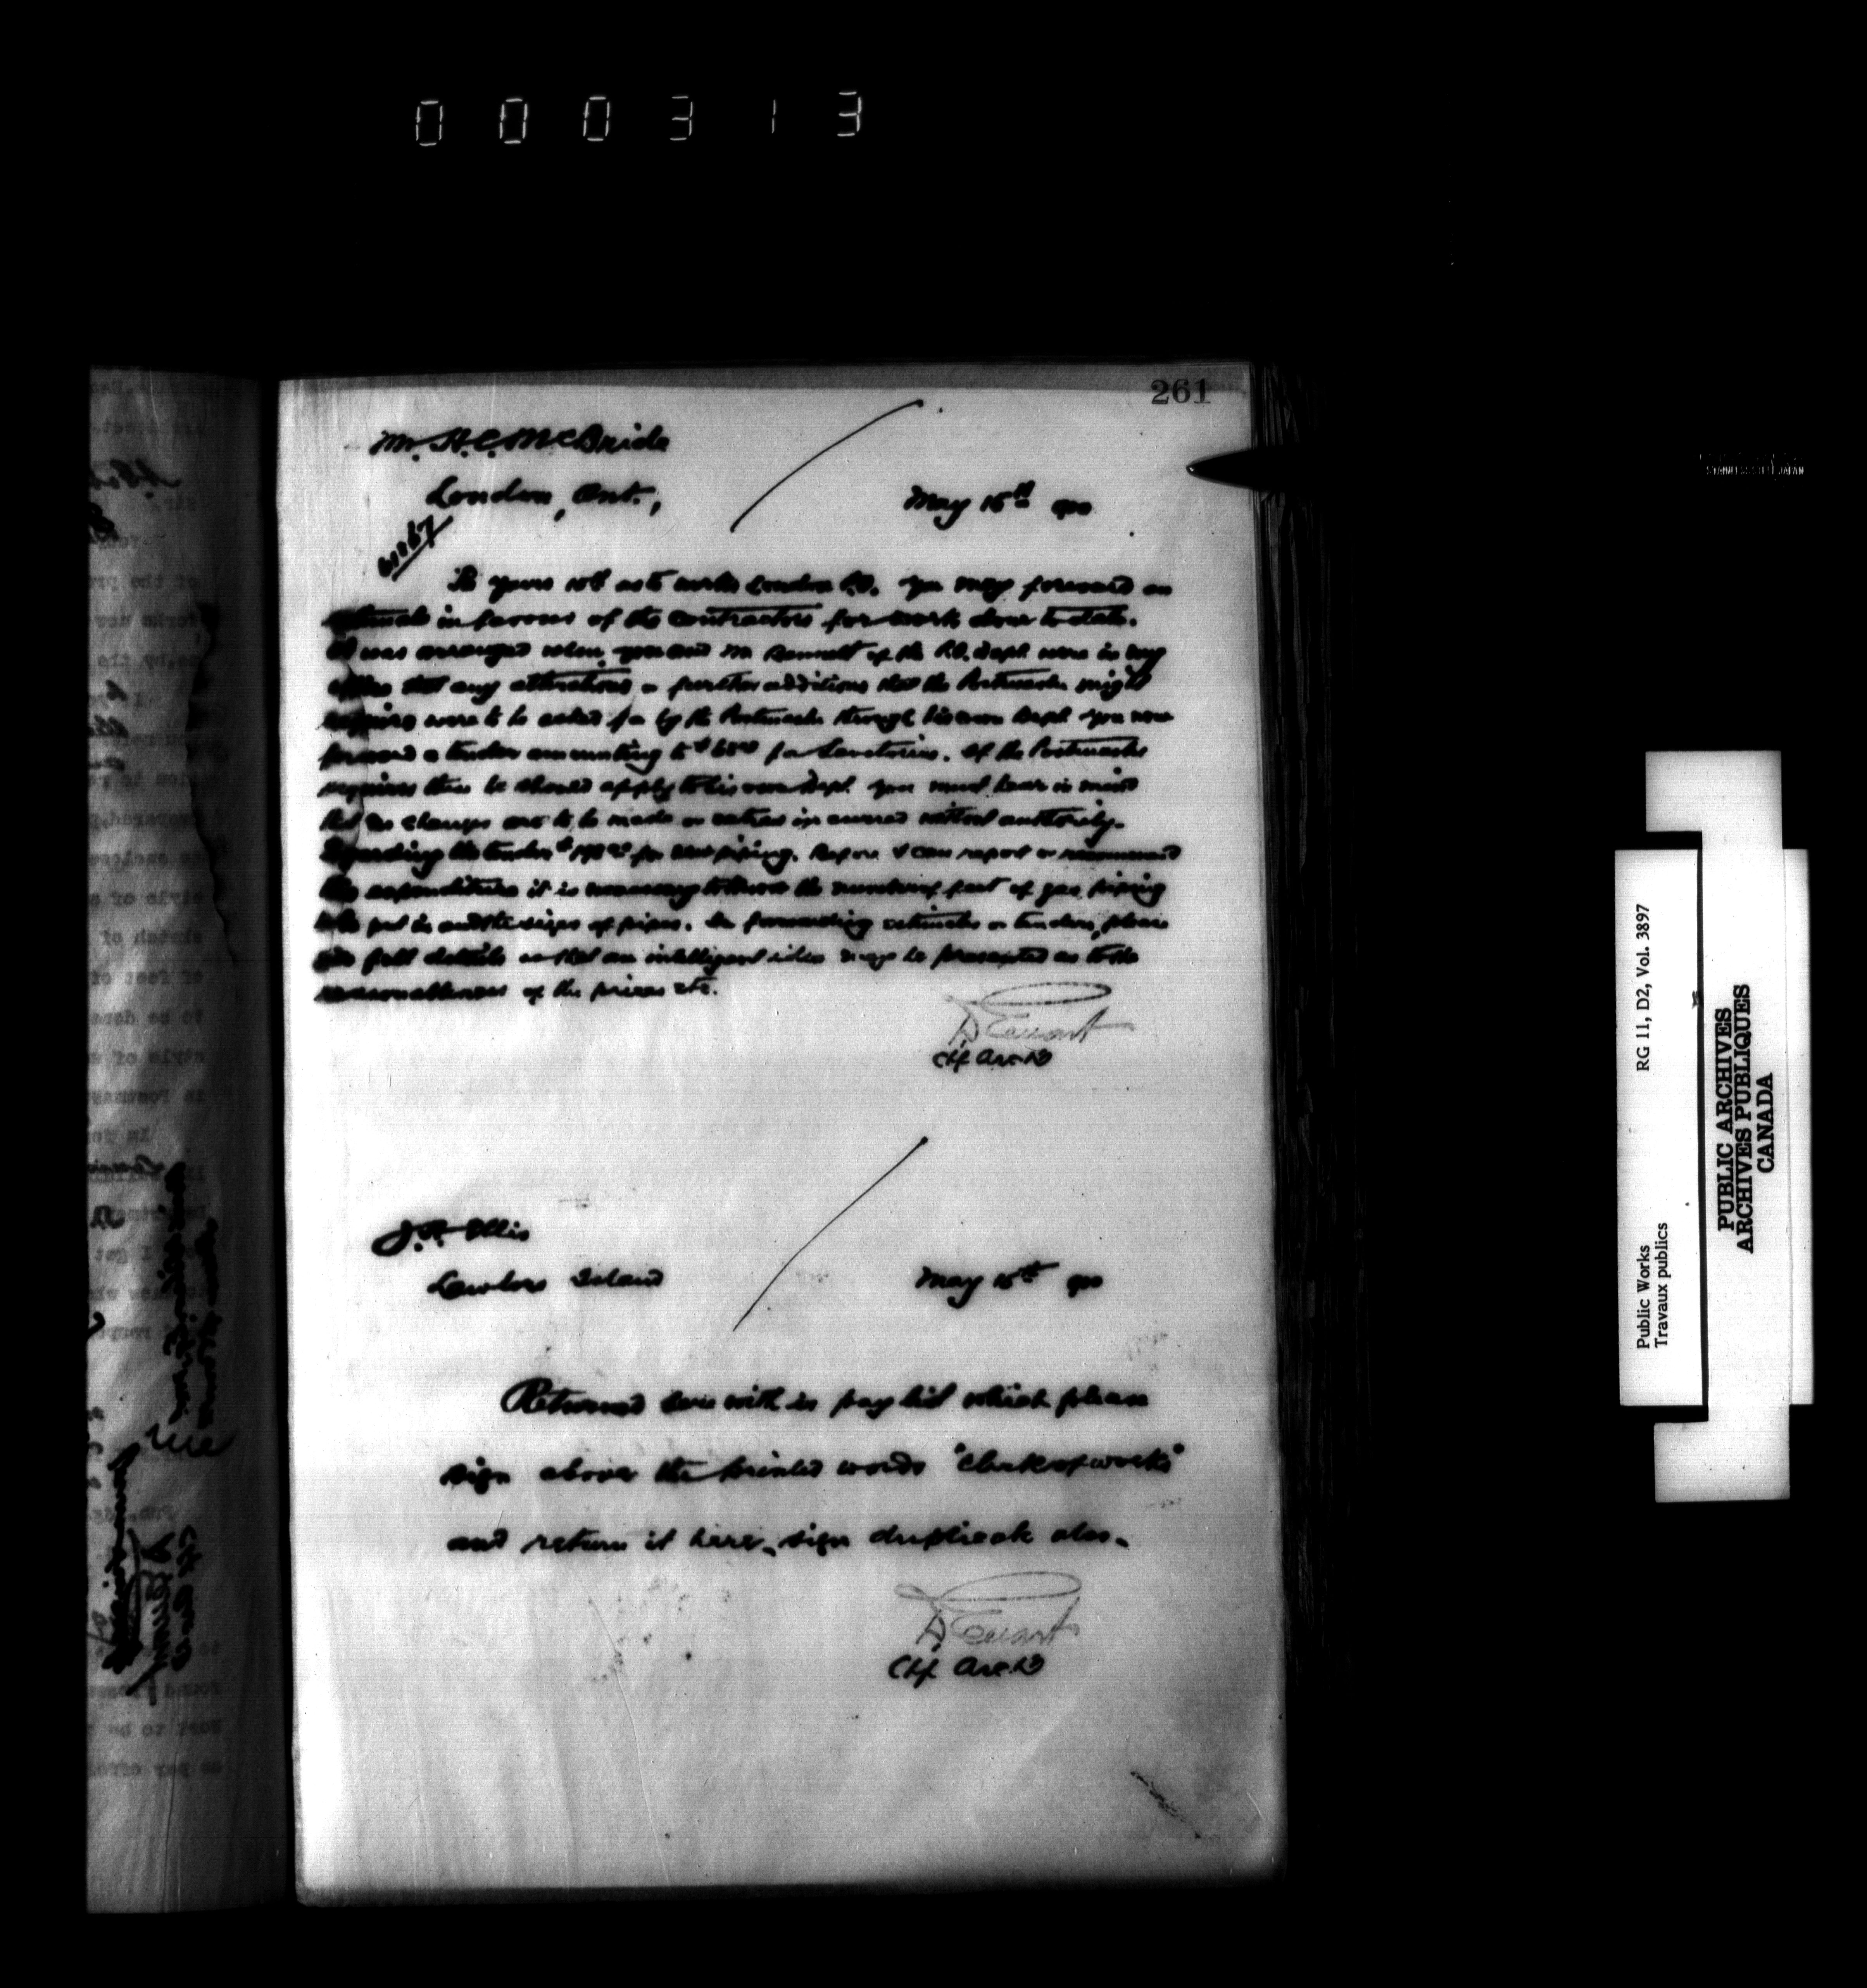 000313
261
Mr. H. C. McBride
London, Ont.,
May 15th 900
To yours 10th as to works London P.O. you may forward an
estimate in favour of the contractors for work done to date.
It was arranged when you and Mr Bennett of the P.O. Dept were in my
office that any alterations or further additions that the Postmaster might
require were to be asked for by the Postmaster through his own Dept you now
forward a tender amounting to for Lavatories. If the Postmaster
requires these he should apply to his own Dept. you must bear in mind
that no changes are to be made or extras incurred without authority.
Regarding the tender for gas piping. Before I can report or recommend
the expenditure it is necessary to know the number of feet of gas piping
to be put in and the sizes of pipes. In forwarding estimates or tenders, please
give full details so that an intelligent idea may be presented as to the
reasonableness of the prices etc.
D Ewart
Chf Archt
J. A. Ellis
Lawlors Island
May 15th 900
Returned herewith is pay list which please
sign above the printed words "clerk of works"
and return it here, sign duplicate also.
D Ewart
Chf Archt
Public Works
Travaux publics
RG 11, D2, Vol. 3897
PUBLIC ARCHIVES
ARCHIVES PUBLIQUES
CANADA